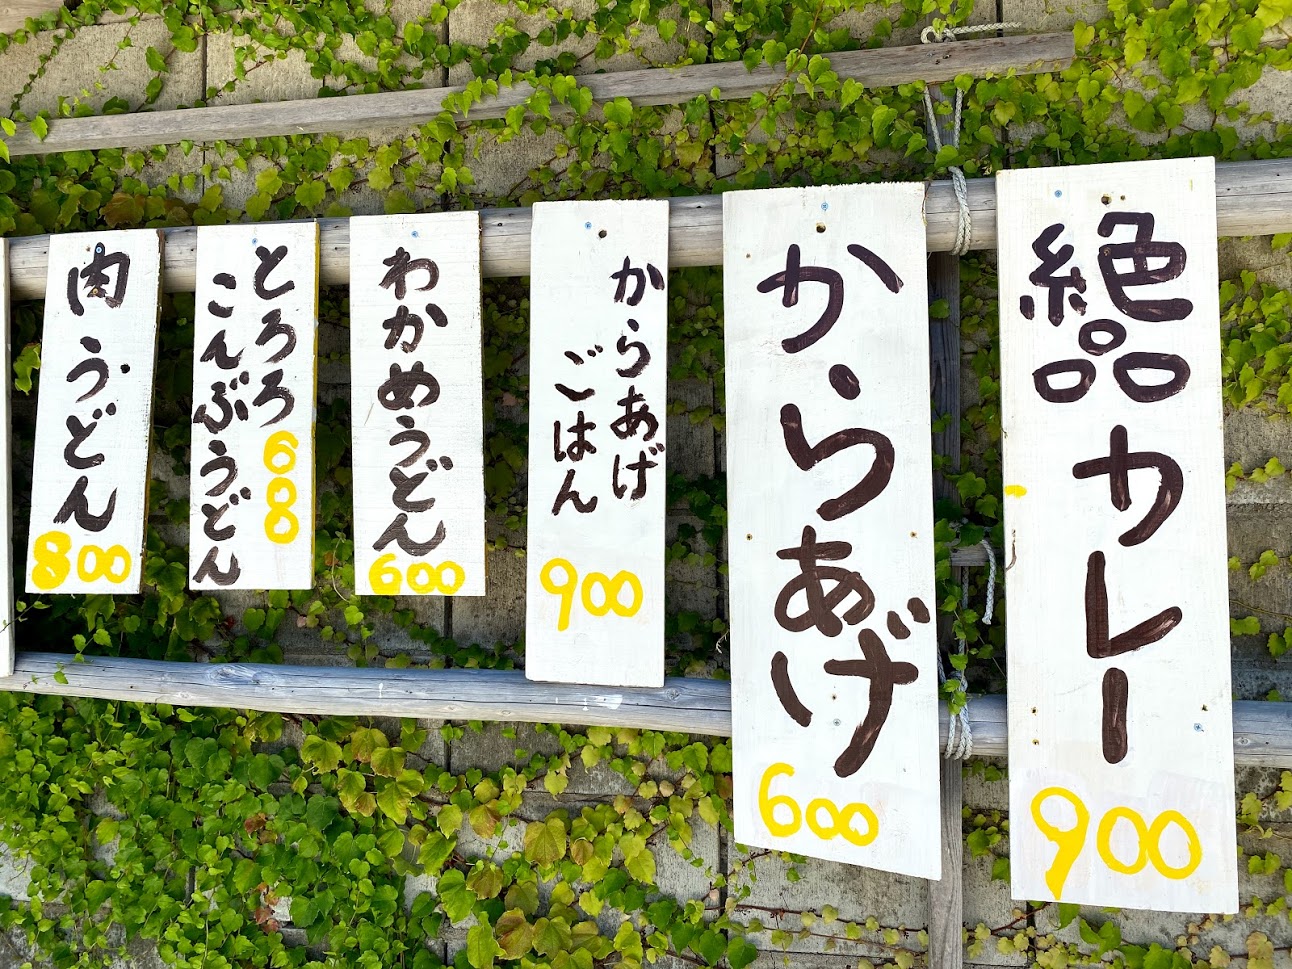 絶品カレー
900
からあげ
600
からあげ
ごはん
900
わかめうどん
600
とろろ
こんぶうどん
600
肉うどん
800